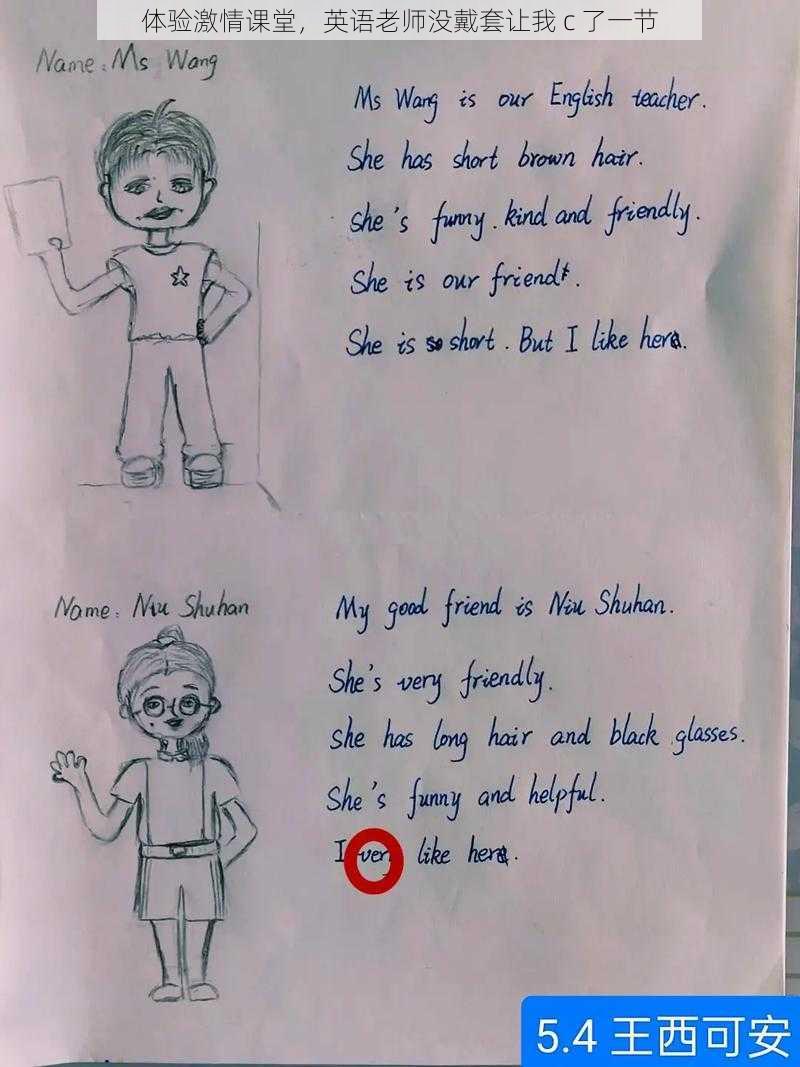 体验激情课堂，英语老师没戴套让我 c 了一节
Name: Ms Wang
Ms Wang is our English teacher.
She has short brown hair.
She's funny. kind and friendly.
She is our friend.
She is so short. But I like her.
Name: Niu Shuhan
My good friend is Niu Shuhan.
She's very friendly.
She has long hair and black glasses.
She's funny and helpful.
I very like her.
5.4 王西可安